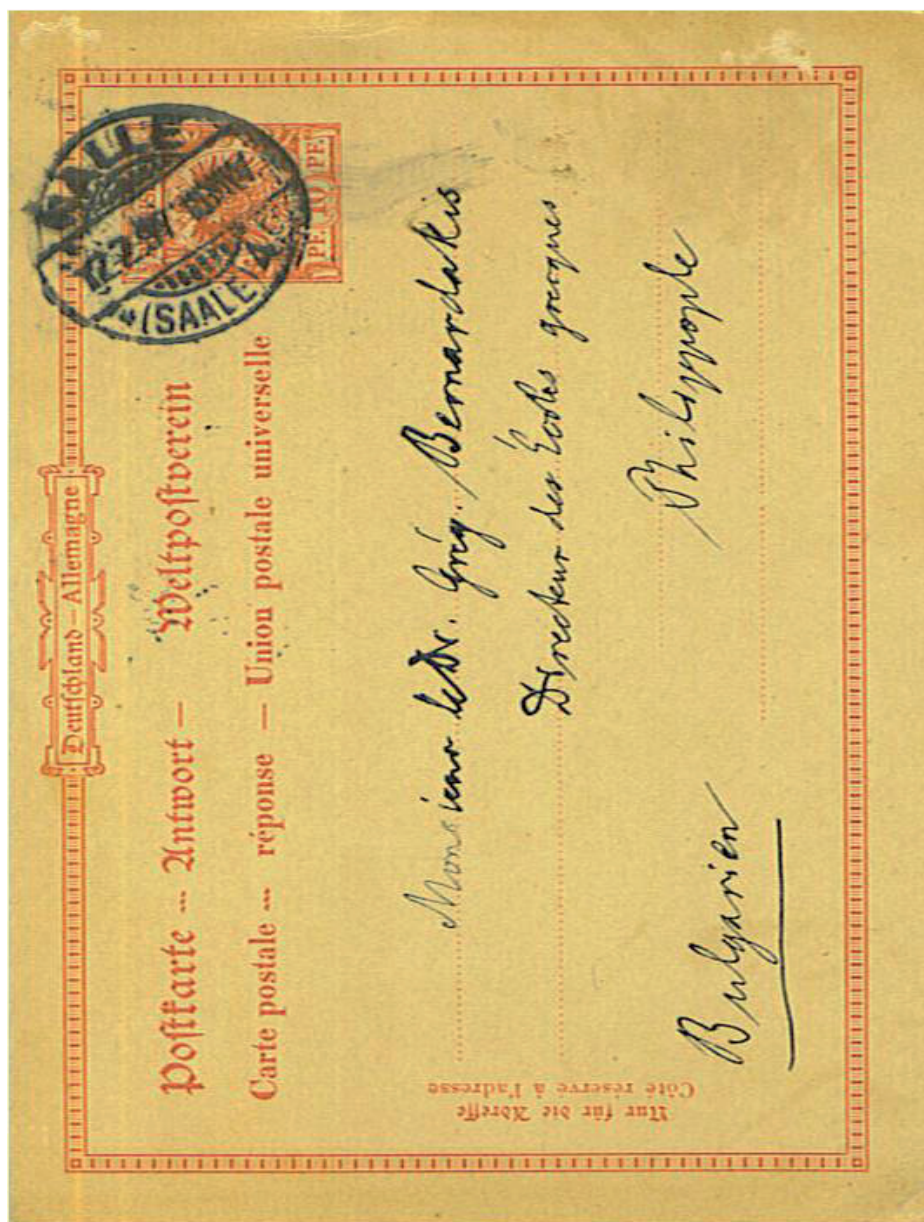 Deutschland – Allemagne
Postkarte -- Antwort – Weltpostverein
Carte postale -- réponse — Union postale universelle
HALLE
12.2.97
* (SAALE)
PF. 10 PF.
Monsieur le Dr. Grég. Bernardakis
Directeur des Écoles grecques
Philippople
Bulgarien
Nur für die Adresse
Côté réservé à l'adresse